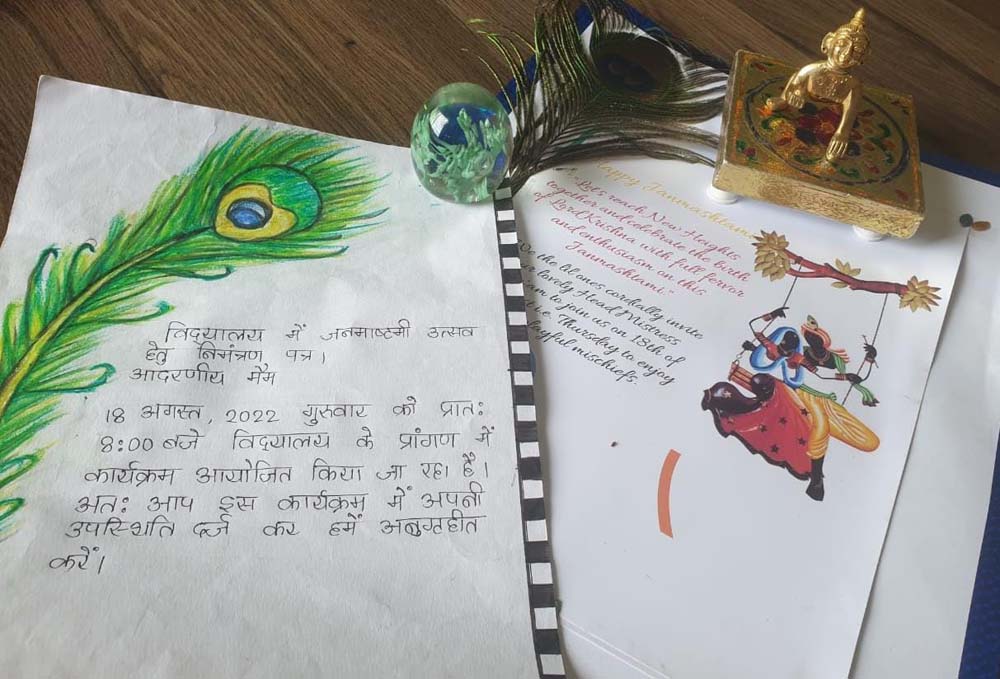 विद्यालय में जनमाष्टमी उत्सव
हेतु निमंत्रण पत्र।
आदरणीय मैम
18 अगस्त, 2022 गुरुवार को प्रातः
8:00 बजे विद्यालय के प्रांगण में
कार्यक्रम आयोजित किया जा रहा है।
अतः आप इस कार्यक्रम में अपनी
उपस्थिति दर्ज कर हमें अनुग्रहीत
करें।
Happy Janmashtami
"Let's reach New Heights
together and celebrate the birth
of Lord Krishna with full fervor
and enthusiasm on this
Janmashtami."
the lil ones cordially invite
lovely Head Mistress
to join us on 18th of
i.e. Thursday to enjoy
playful mischiefs.